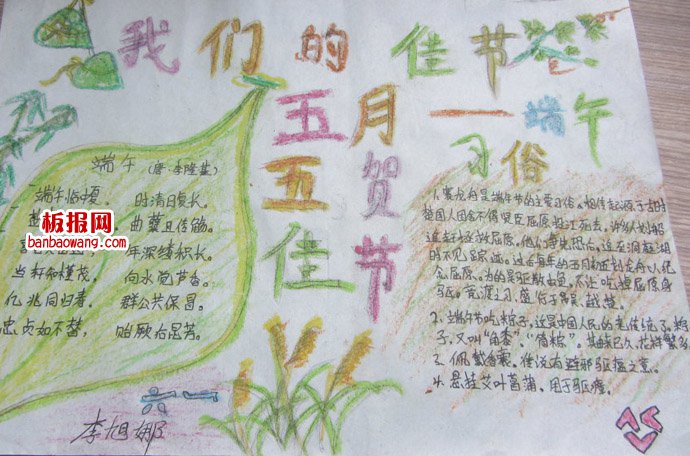 我们的佳节——端午习俗
五月五佳
贺节
端午(唐·李隆基)
端午临中夏, 时清日复长。
盐梅已佐鼎, 曲糵且传觞。
年深缕积长。
当轩知槿茂, 向水觉芦香。
亿兆同归寿, 群公共保昌。
忠贞如不替, 贻厥后昆芳。
板报网
banbaowang.com
李旭娜
1、赛龙舟是端午节的主要习俗。相传起源于古时
楚国人因舍不得贤臣屈原投江死去,许多人划船
追赶拯救屈原。他们争先恐后,追至洞庭湖
时不见踪迹。过去每年的五月初五划龙舟以纪
念屈原。为的是驱散鱼,不让吃掉屈原身
躯。竞渡之习,盛行于吴、越、楚。
2、端午节吃粽子,这是中国人民的老传统了。粽
子,又叫“角黍”、“筒粽”。其由来已久,花样繁多
3、佩戴香囊。传说有避邪驱瘟之意。
4、悬挂艾叶菖蒲,用于驱瘴。